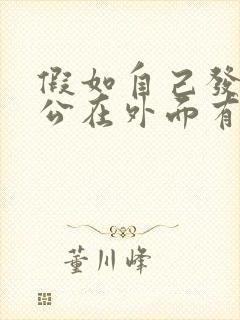 假如自己發
公在外而有
董川峰